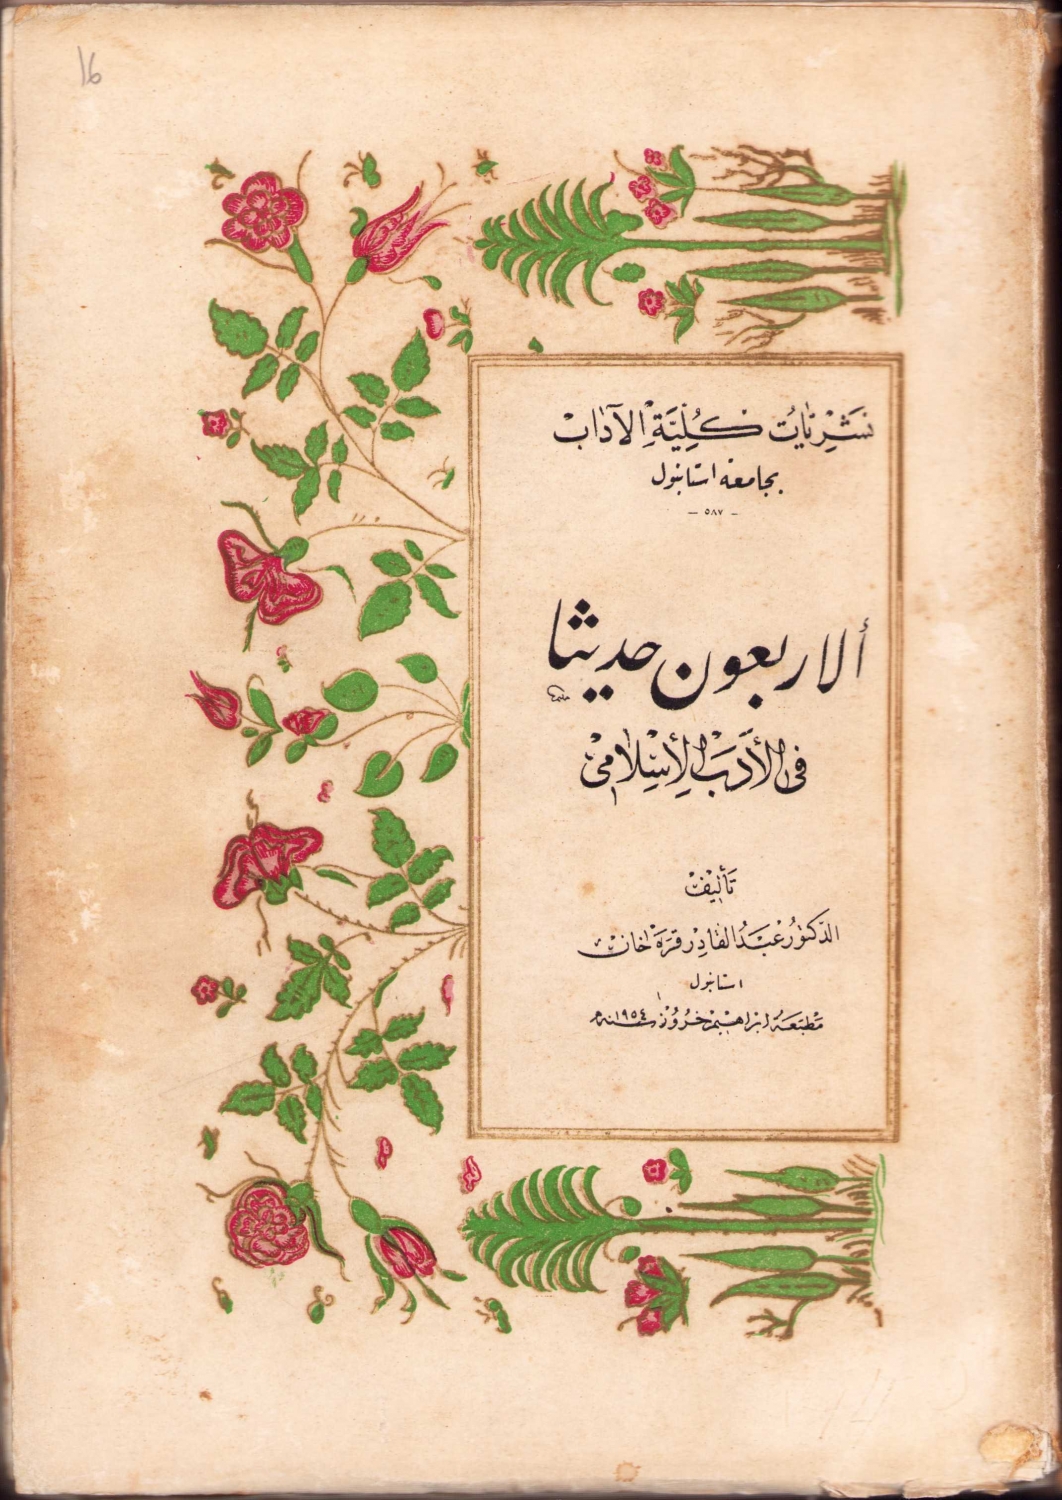 16
نَشْرِيَاتُ كُلِّيَّةِ الْآدَابْ
بجامعه استانبول
– ٥٨٧ –
ألاربعون حديثا
فِى الْأَدَبِ الْأِسْلَامِىْ
تَأْلِيفْ
الدّكتورُ عَبْدُ القَادِر قَرَه خَانْ
استانبول
مَطْبَعَةُ ابْرَاهِيمْ خُرُوزْ سَنه ١٩٥٤